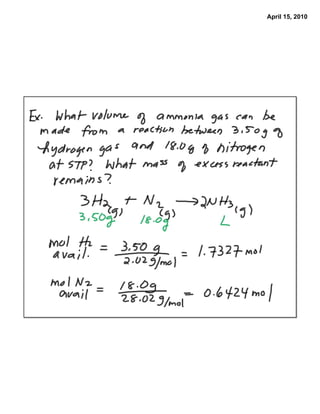 April 15, 2010
Ex. What volume of ammonia gas can be
made from a reaction between 3.50g of
hydrogen gas and 18.0g of nitrogen
at STP? What mass of excess reactant
remains?
3H₂(g) + N₂(g) → 2NH₃(g)
3.50g 18.0g L
mol H₂ avail. = 3.50 g / 2.02 g/mol = 1.7327 mol
mol N₂ avail = 18.0g / 28.02 g/mol = 0.6424 mol